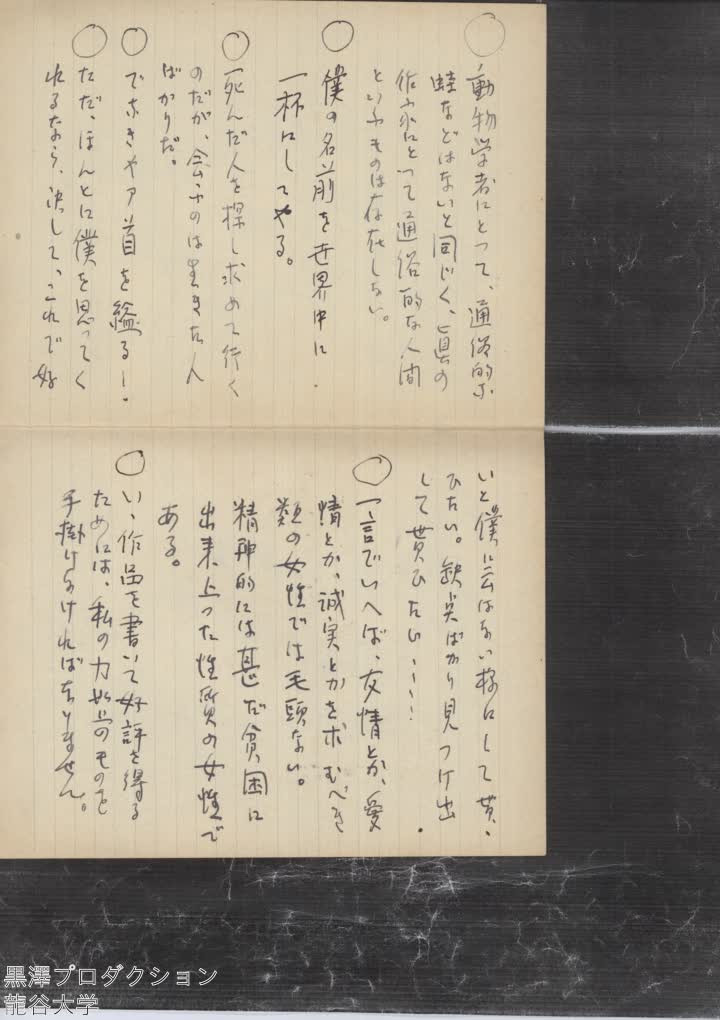 ○動物学者にとって、通俗的な
蛙などはないと同じく、真の
作家にとって通俗的な人間
といふものは存在しない。
○僕の名前を世界中に
一杯にしてやる。
○死んだ人を探し求めて行く
のだが、会ふのは生きた人
ばかりだ。
○でなきやア首を縊るし
○ただ、ほんとに僕を思ってく
れるなら、決して、これで好
いと僕に云はない様にして貰
ひたい。缺点ばかり見つけ出
して貰ひたい……!
○一言でいへば、友情とか、愛
情とか、誠実とかを求むべき
類の女性では毛頭ない。
精神的には甚だ貧困に
出来上った性質の女性で
ある。
○いゝ作品を書いて好評を得る
ためには、私の力以上のものを
手掛けなければなりません。
黒澤プロダクション
龍谷大学